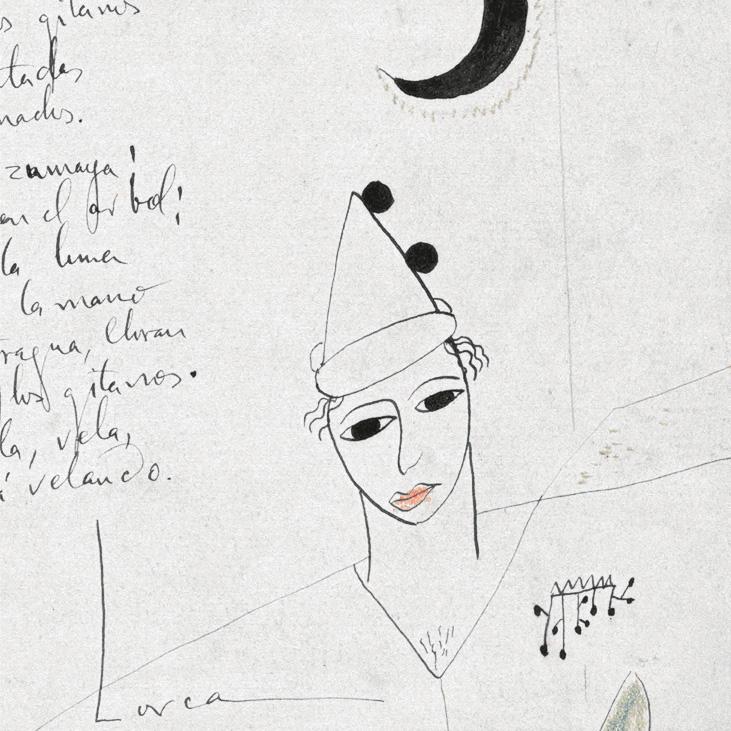 s gitanos
tadas
nadas.
zumaya!
en el árbol!
la luna
la mano
ragua, lloran
los gitanos.
la, vela,
á velando.
Lorca